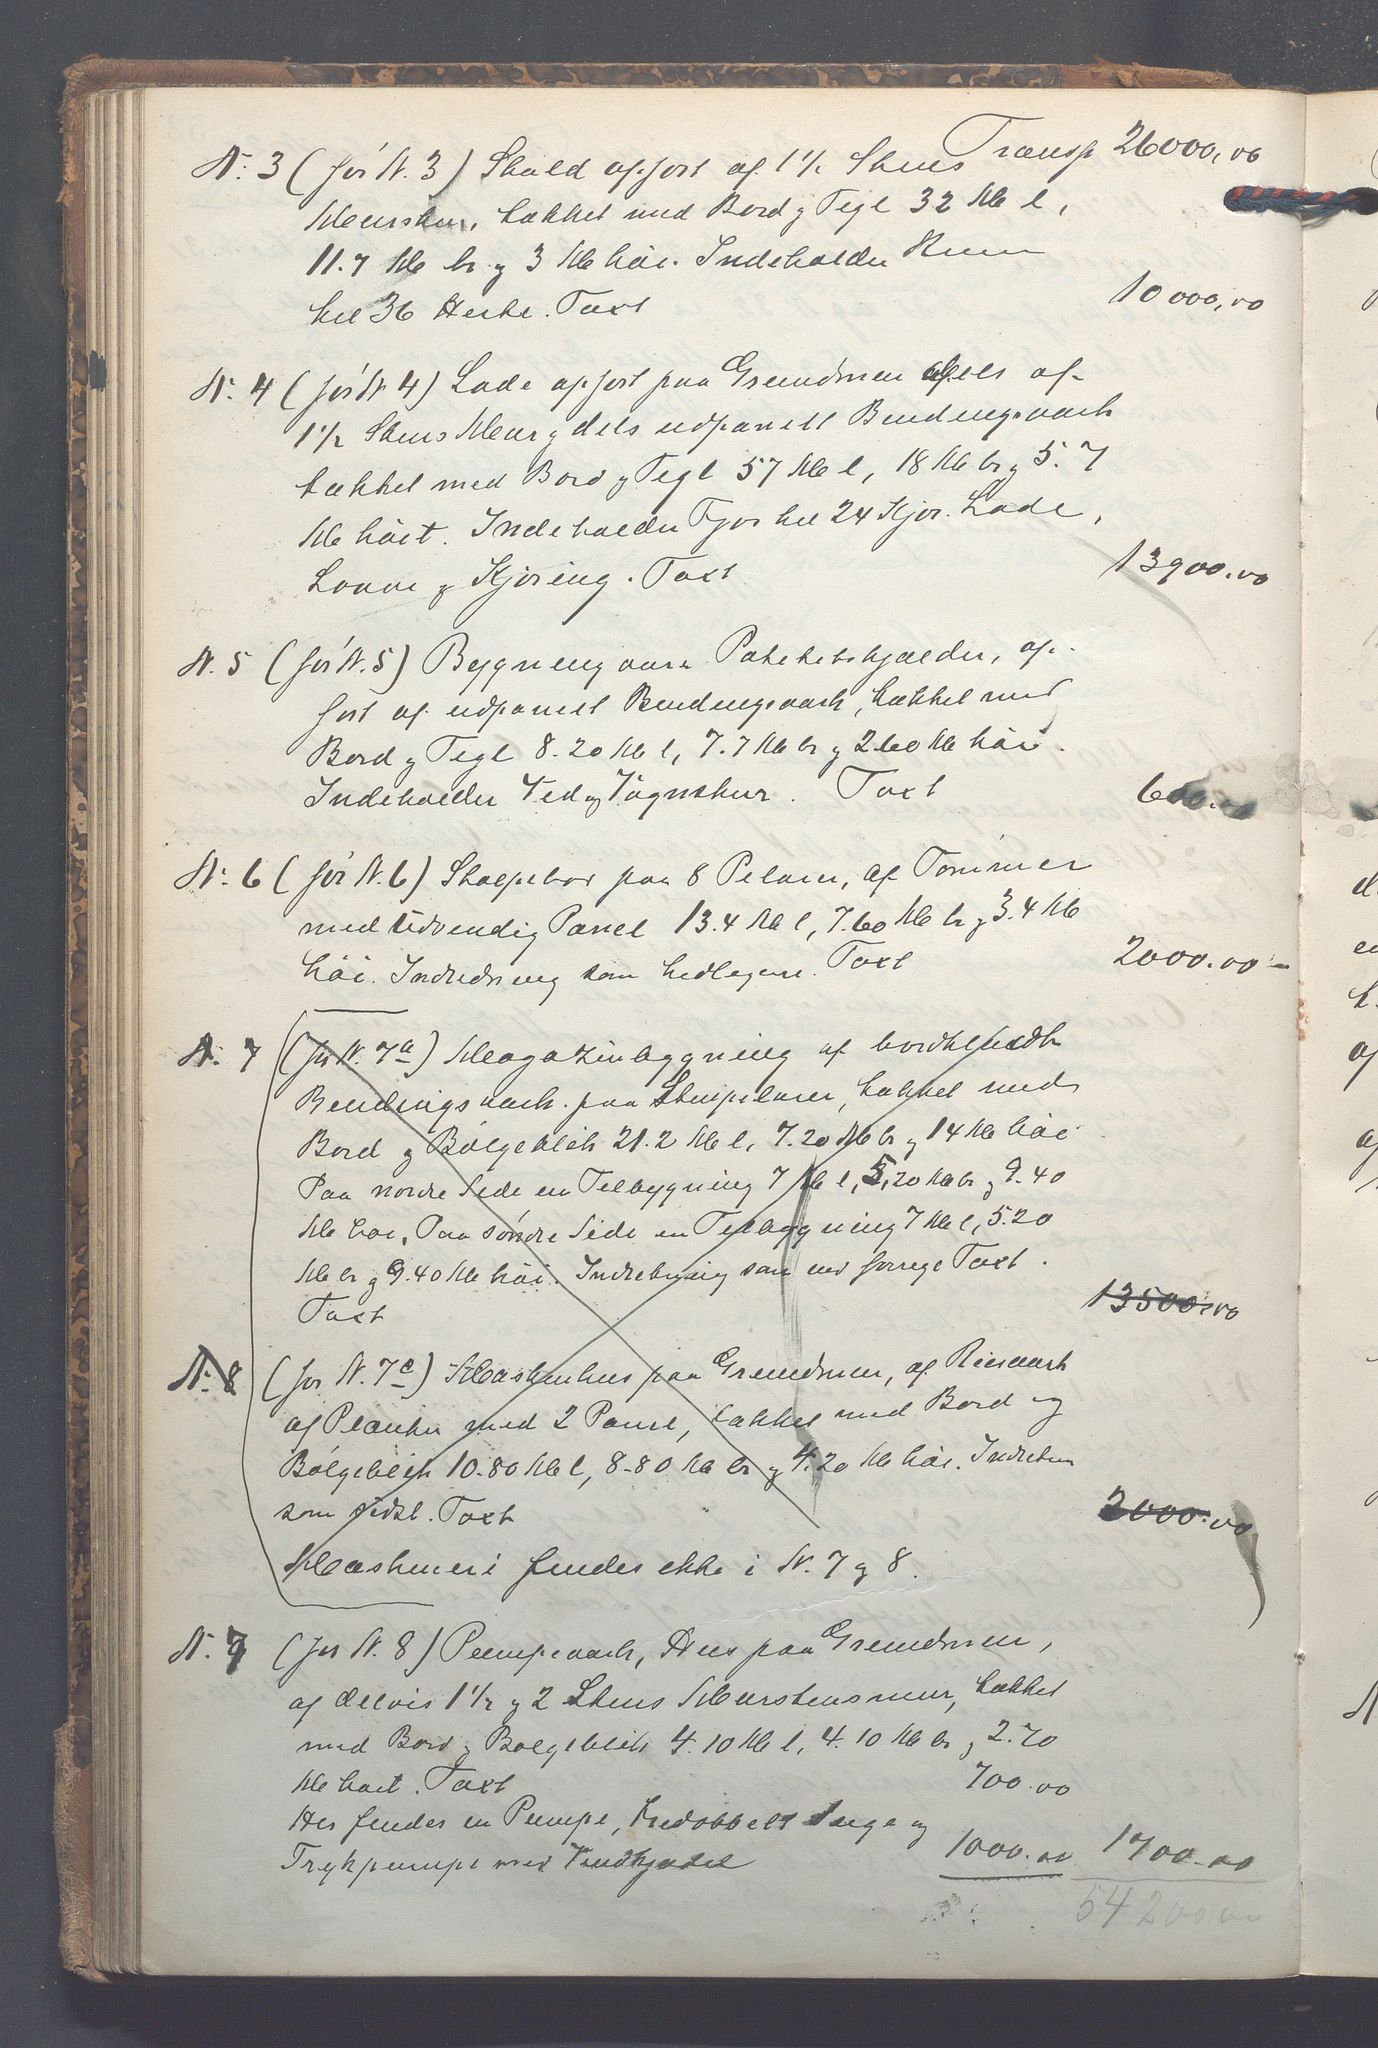 Transp 26000,00
N. 3 (før N. 3) Stald opført af 1½ Stens
Mursten, tækket med Bord g Tegl 32 M l,
11.7 M br. g 3 M høi. Indeholder Rum
til 36 Heste. Taxt 10000,00
N. 4 (før N 4) Lade opført paa Grundmur dels af
1½ Stens Mur g dels udpanelt Bindingsværk
tækket med Bord g Tegl 57 M l, 18 M br g 5.7
M høit. Indeholder Fjøs til 24 Kjør. Lade,
Laave g Kjøring. Taxt 13900.00
N. 5 (før N. 5) Bygning over Potetkjælder, op-
ført af udpanelt Bindingsværk, tækket med
Bord g Tegl 8.20 M l, 7.7 M br g 2.60 M høi.
Indeholder Ved og Vognskur. Taxt 600.00
N. 6 (før N. 6) Stolpebod paa 8 Pelarer, af Tømmer
med udvendig Panel 13.4 M l, 7.60 M br g 3.4 M
høi. Indredning som tidligere. Taxt 2000.00
N. 7 (før N. 7a) Magazinbygning af bordklædt
Bindingsværk paa Stenpelarer, tækket med
Bord g Bølgeblik 21.2 M l, 7.20 M br g 14 M høi
Paa nordre Side en Tilbygning 7 M l, 5,20 M br g 9.40
M høi, Paa søndre Side en Tilbygning 7 M l, 5.20
M br g 9.40 M høi. Indredning som ved forrige Taxt.
Taxt 13500.00
N. 8 (før N. 7c) Maskinhus paa Grundmur, af Reisværk
af Planker med 2 Panel, tækket med Bord og
Bølgeblik 10.80 M l, 8.80 M br g 4.20 M høi. Indretn
som sidst. Taxt 2000.00
Maskineri findes ikke i N. 7 g 8.
N. 7 (før N. 8) Pumpeværk, Hus paa Grundmur,
af delvis 1½ g 2 Stens Murstensmur, tækket
med Bord g Bølgeblik 4.10 M l, 4.10 M br g 2.70
M høit. Taxt 700.00
Her findes en Pumpe, Suge og
Trykpumpe med Vindkjedel 1000.00 1700.00
54200.00